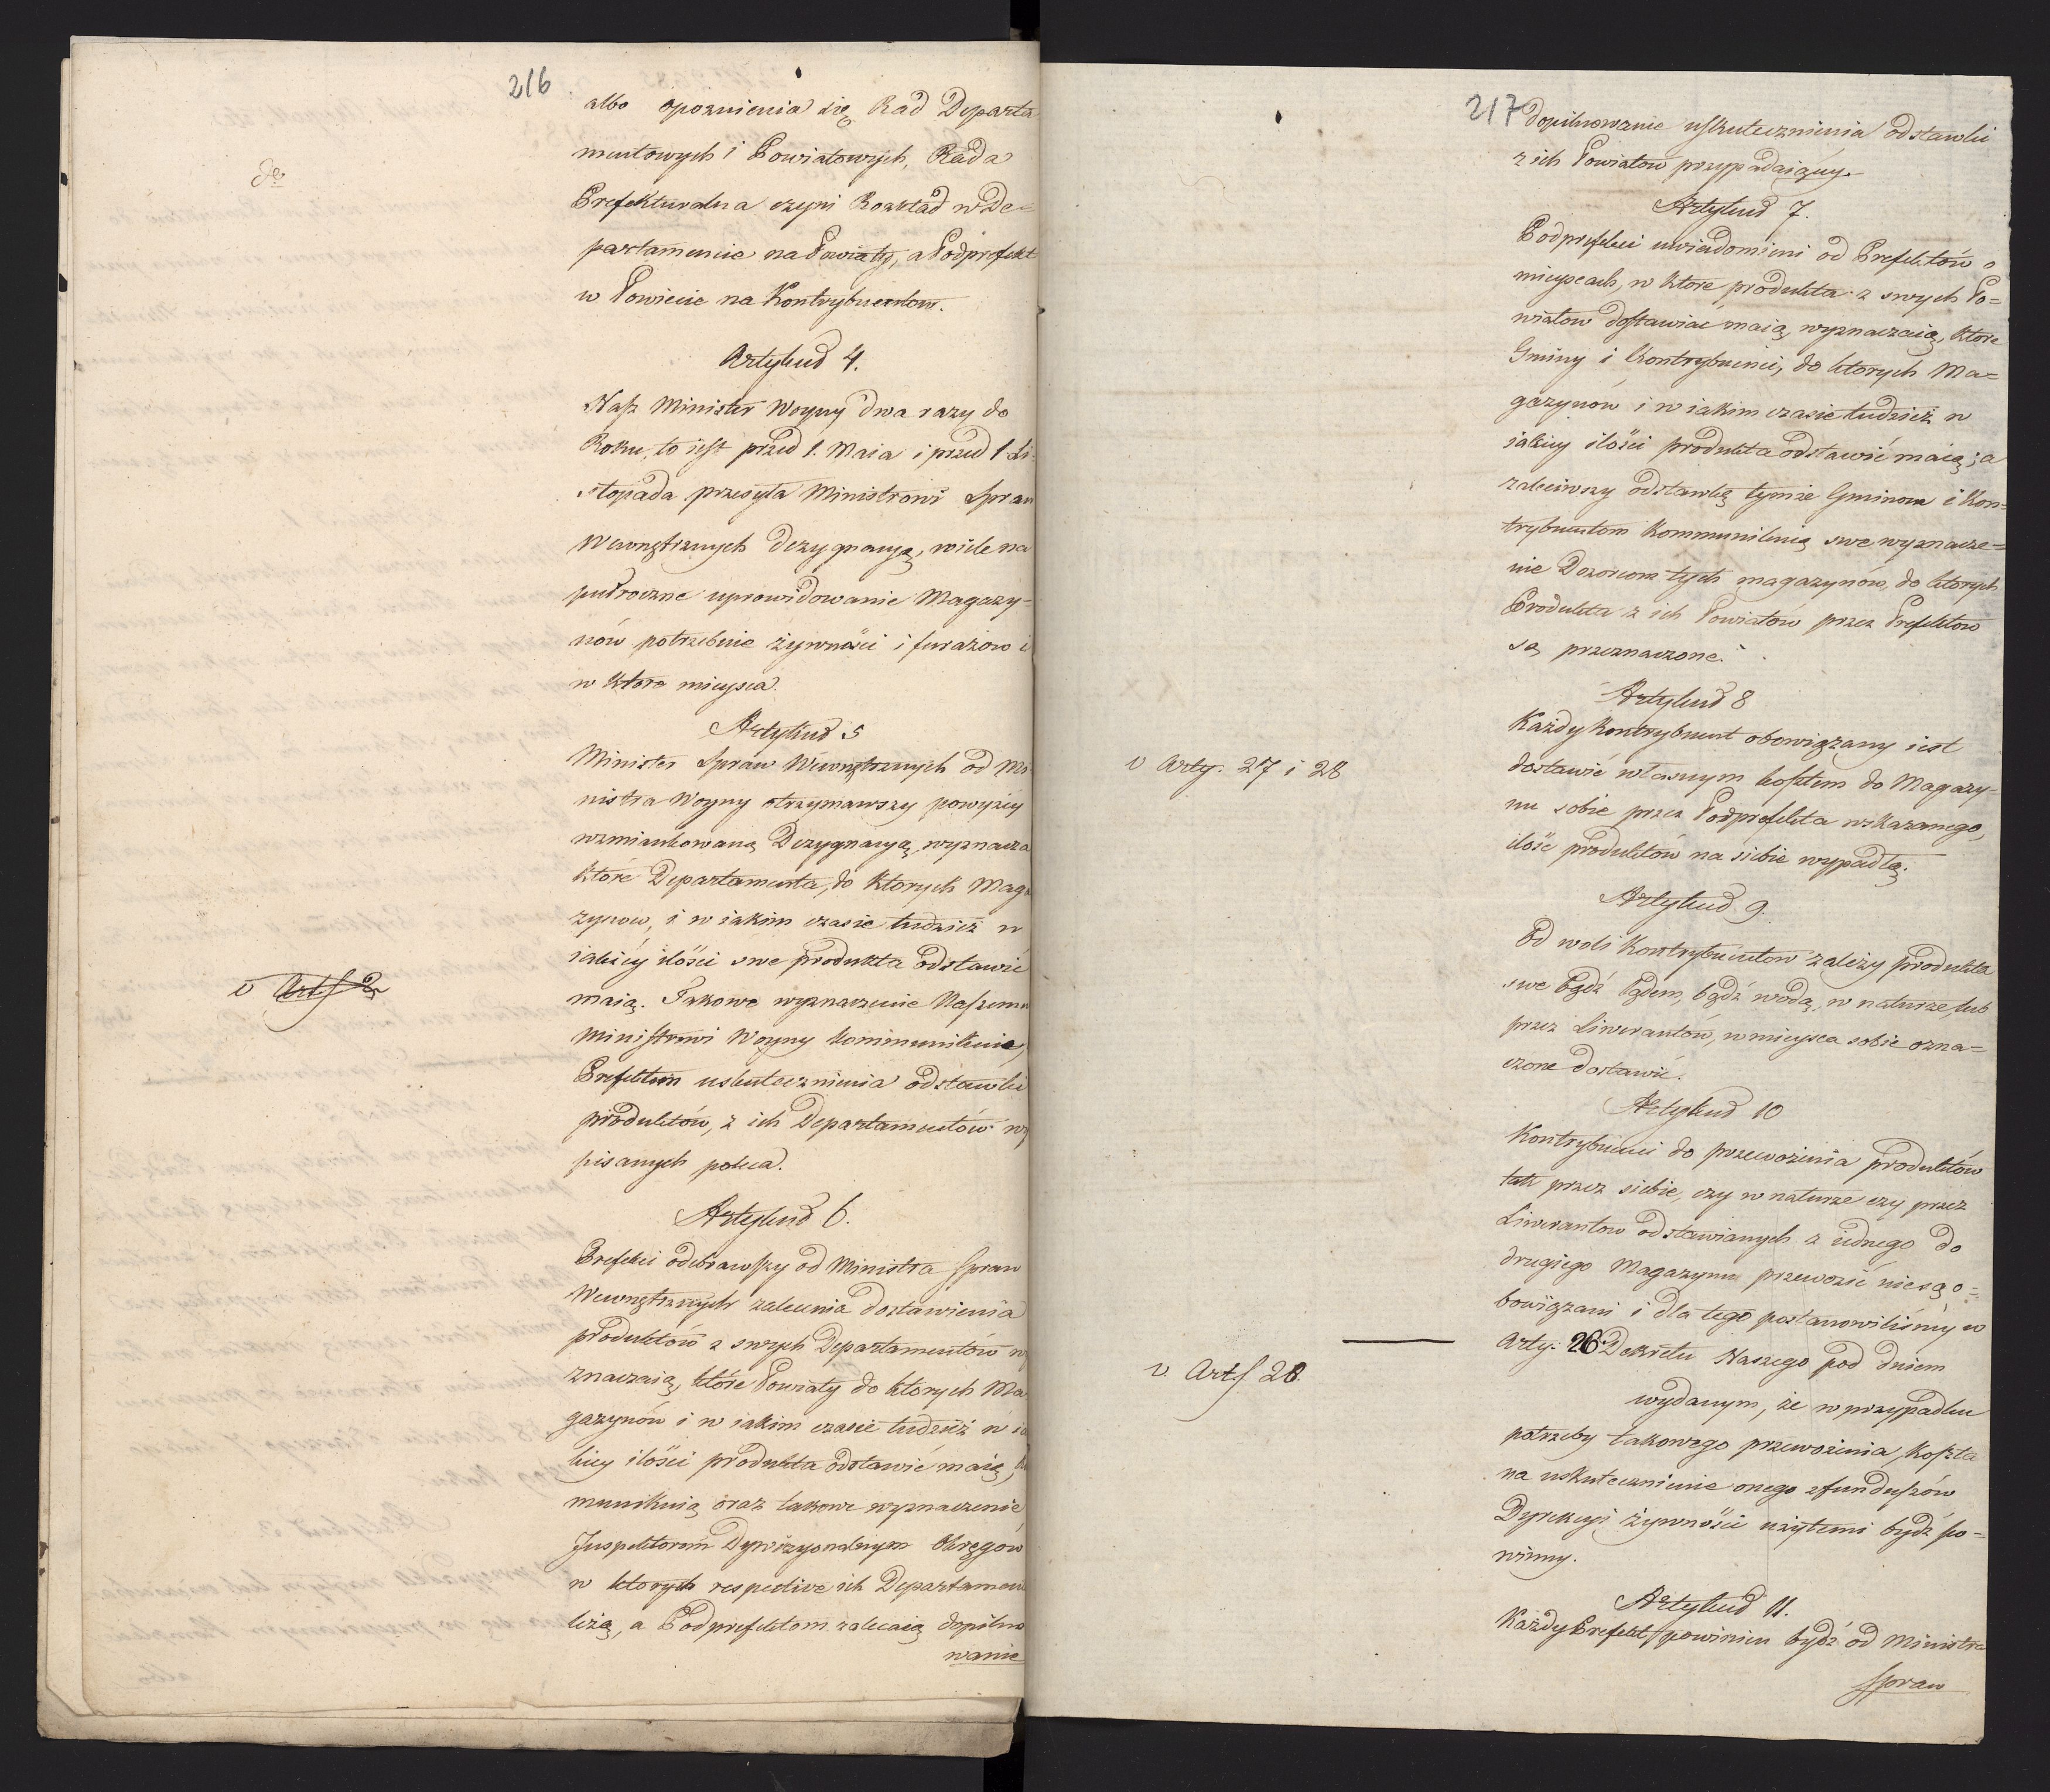 216
albo opoznienia się Rad Departa
mentowych i Powiatowych, Rada
Prefekturalna czyni Rozkład w De=
partamencie na Powiaty, a Podprefekt
w Powiecie na Kontrybuentow.
Artykuł 4.
Nasz Minister Woyny dwa razy do
Roku, to iest przed 1. Maia i przed 1. Li=
stopada przesyła Ministrowi Spraw
Wewnętrznych Dezygnacyą, wiele na
pułroczne uprowidowanie Magazy=
nów potrzebnie żywności i furażow i
w ktore mieysca.
Artykuł 5
Minister Spraw Wewnętrznych od Mi
nistra Woyny otrzymawszy powyżey
wzmiankowaną Dezygnacyą, wyznacza
które Departamenta, do ktorych Maga
zynow, i w iakim czasie tudzież w
iakiéy ilości swe produkta odstawić
v Arts 2
maią. Takowe wyznaczenie Naszemu
Ministrowi Woyny kommunikuie,
Prefektom uskutecznienia odstawki
produktów, z ich Departamentów wy
pisanych poleca.
Artykuł 6.
Prefekci odebrawszy od Ministra Spraw
Wewnętrznych zalecenia dostawienia
produktów z swych Departamentów wy
znaczaią, które Powiaty do ktorych Ma
gazynów i w iakim czasie tudzież w ia
kiey ilości produkta odstawić maią,
munikuią oraz takowe wyznaczenie
Inspektorom Dywizyonalnym Okręgow
w ktorych respective ich Departamen
leżą, a Podprefektom zalecaią dopilno
wanie
217
dopilnowanie uskutecznienia odstawki
z ich Powiatow przypadaiącey.
Artykuł 7.
Podprefekci uwiadomieni od Prefektów o
mieyscach, w ktore produkta z swych Po=
wiatow dostawiać maią, wyznaczaią, ktore
Gminy i Kontrybuenci, do ktorych Ma=
gazynów i w iakim czasie tudzież w
iakiey ilości produkta odstawić maią; a
zaleciwszy odstawkę tymże Gminom i Kon=
trybuentom kommunikuią swe wyznacze=
nie Dozorcom tych magazynów, do ktorych
Produkta z ich Powiatów przez Prefektow
są przeznaczone.
Artykuł 8
v Arty: 27 i 28
Każdy Kontrybuent obowiązany iest
dostawić własnym kosztem do Magazy=
nu sobie przez Podprefekta wskazanego,
ilość produktów na siebie wypadłą.
Artykuł 9.
Od woli Kontrybuentow zależy produkta
swe bądź lądem, bądź wodą, w naturze, lub
przez Liwerantów, w mieysca sobie ozna=
czone dostawić.
Artykuł 10
Kontrybuenci do przewożenia produktów
tak przez siebie, czy w naturze czy przez
Liwerantow odstawianych z iednego do
drugiego Magazynu przewozić nie są o=
bowiązani i dla tego postanowiliśmy w
v. Arts 28.
Arty: 26 Dekretu Naszego pod dniem
wydanym, że w przypadku
potrzeby takowego przewożenia, koszta
na uskutecznienie onego z funduszów
Dyrekcyi żywności użytemi bydź po=
winny.
Artykuł 11.
Każdy Prefekt powinien bydź od Ministra
Spraw